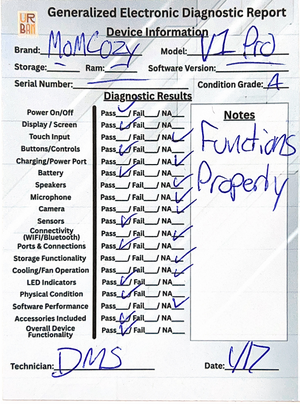 UR
BAN
Generalized Electronic Diagnostic Report
Device Information
Brand: MomCozy Model: V1 Pro
Storage: — Ram: — Software Version:
Serial Number: Condition Grade: A
Diagnostic Results
Notes
Functions
Properly
Power On/Off Pass ✓ / Fail / NA
Display / Screen Pass ✓ / Fail / NA
Touch Input Pass / Fail / NA ✓
Buttons/Controls Pass ✓ / Fail / NA
Charging/Power Port Pass / Fail / NA ✓
Battery Pass ✓ / Fail / NA
Speakers Pass / Fail / NA ✓
Microphone Pass / Fail / NA ✓
Camera Pass / Fail / NA ✓
Sensors Pass ✓ / Fail / NA
Connectivity
(WIFI/Bluetooth) Pass / Fail / NA ✓
Ports & Connections Pass ✓ / Fail / NA
Storage Functionality Pass / Fail / NA ✓
Cooling/Fan Operation Pass / Fail / NA ✓
LED Indicators Pass ✓ / Fail / NA
Physical Condition Pass ✓ / Fail / NA
Software Performance Pass / Fail / NA ✓
Accessories Included Pass ✓ / Fail / NA
Overall Device
Functionality Pass ✓ / Fail / NA
Technician: DMS Date: 4/17